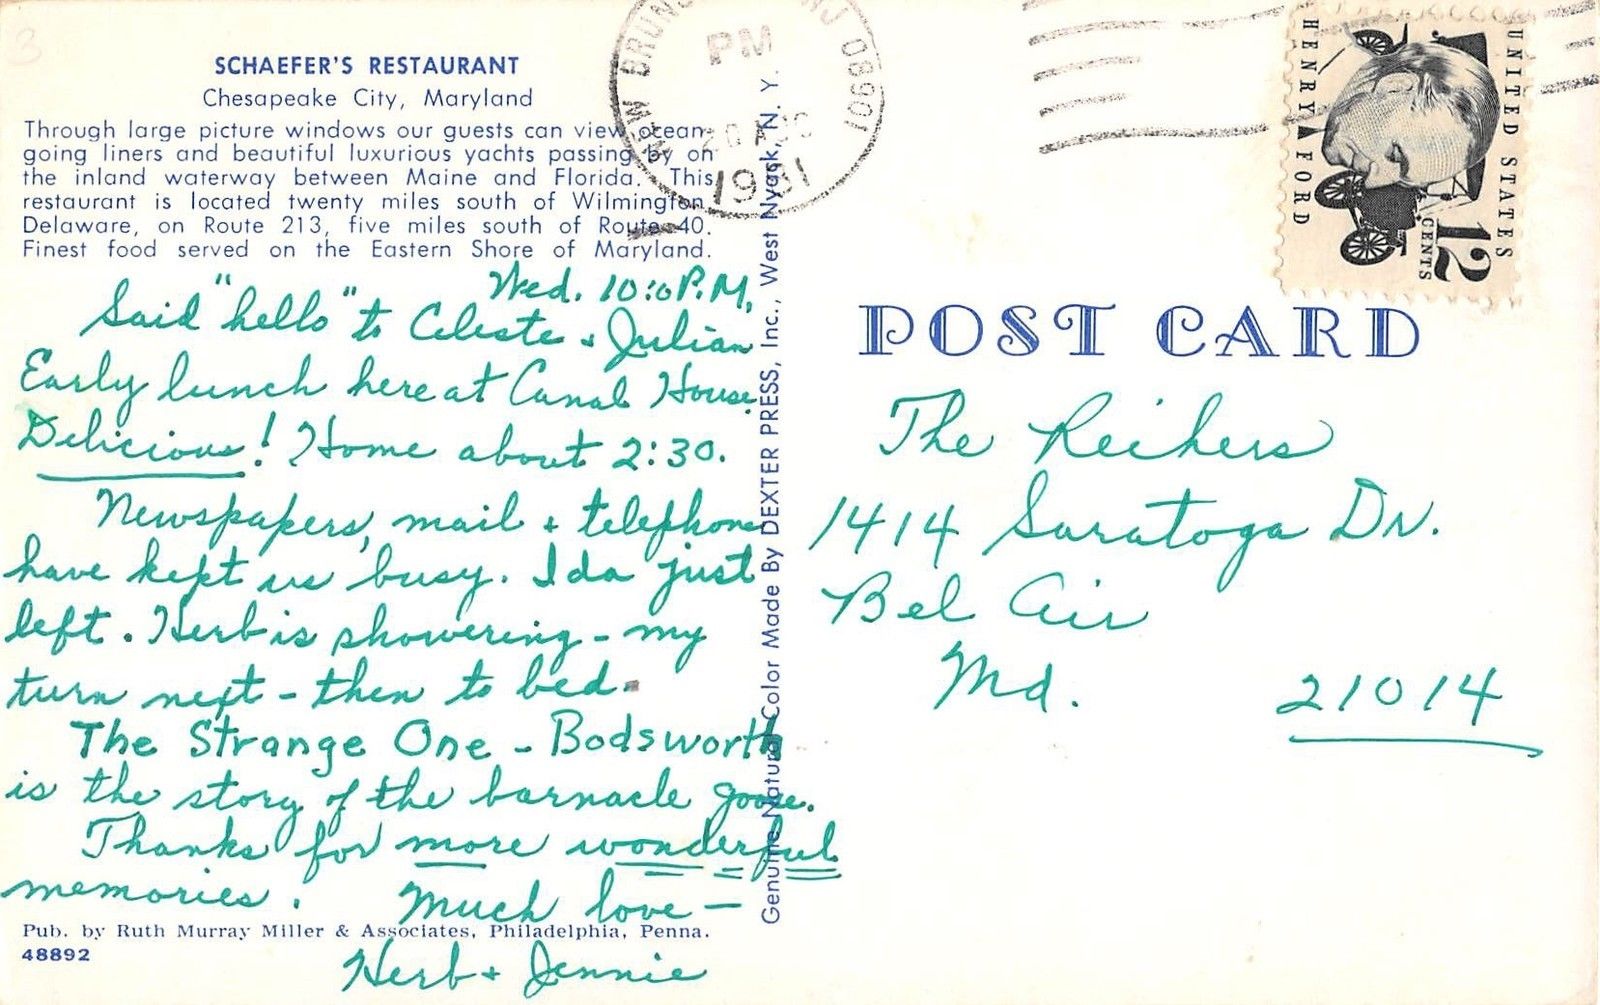 SCHAEFER'S RESTAURANT
Chesapeake City, Maryland
Through large picture windows our guests can view ocean-
going liners and beautiful luxurious yachts passing by on
the inland waterway between Maine and Florida. This
restaurant is located twenty miles south of Wilmington
Delaware, on Route 213, five miles south of Route 40.
Finest food served on the Eastern Shore of Maryland.
Wed. 10:0P.M.
Said "hello" to Celeste + Julian
Early lunch here at Canal House
Delicious! Home about 2:30.
Newspapers, mail + telephone
have kept us busy. Ida just
left. Herb is showering - my
turn next - then to bed.
The Strange One - Bodsworth
is the story of the barnacle goose.
Thanks for more wonderful
memories. Much love -
Herb + Jennie
Pub. by Ruth Murray Miller & Associates, Philadelphia, Penna.
48892
Genuine Natural Color Made By DEXTER PRESS, Inc., West Nyack, N. Y.
NEW BRUNS NJ 08901
PM
1981
UNITED STATES
12 CENTS
HENRY FORD
POST CARD
The Reihers
1414 Saratoga Dr.
Bel Air
Md. 21014